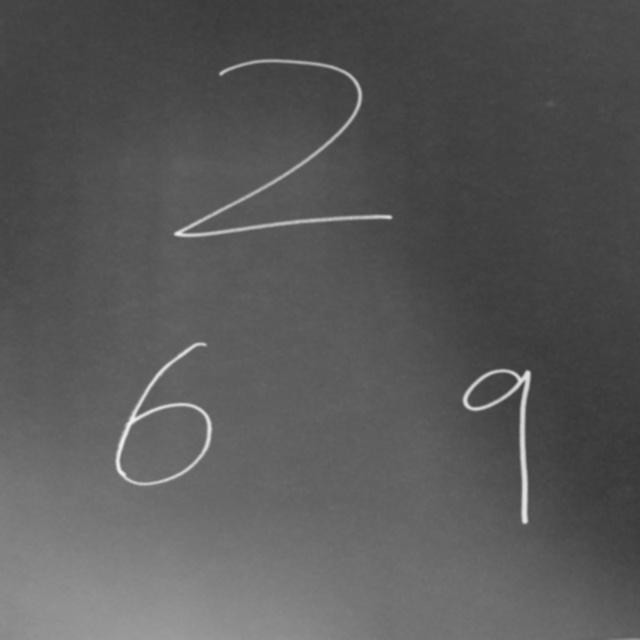 2
6 9